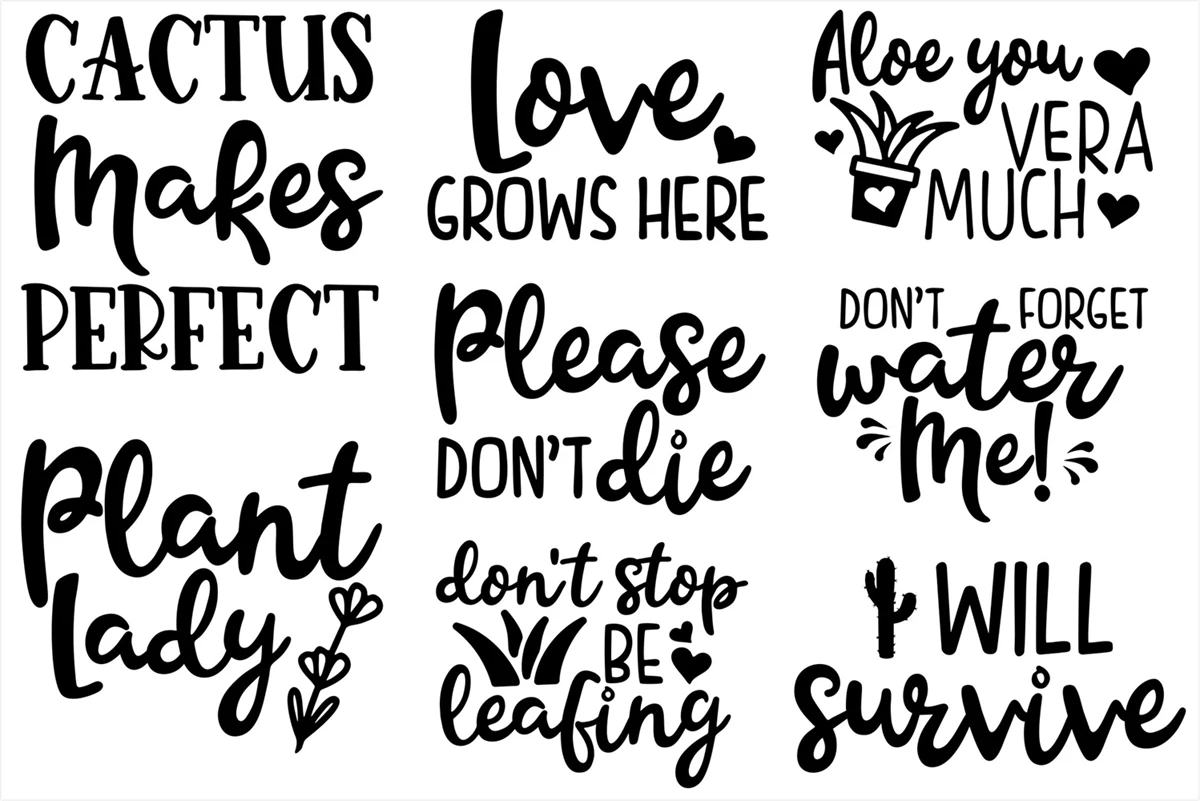 CACTUS
Makes
PERFECT
Love
GROWS HERE
Aloe you
VERA
MUCH
Please
DON'T die
DON'T FORGET
water
Me!
Plant
Lady
don't stop
BE
leafing
WILL
survive